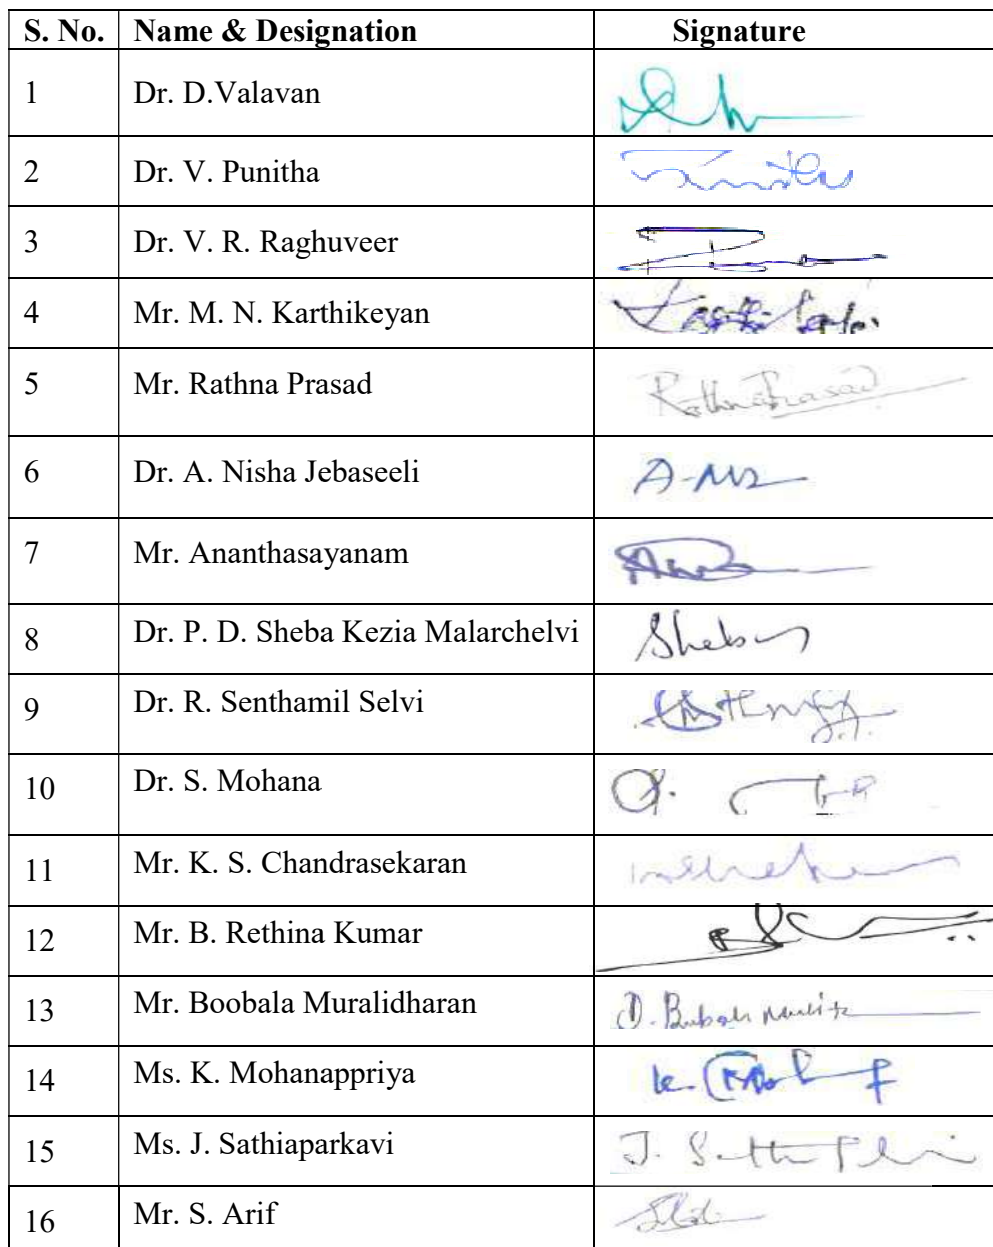 S. No. Name & Designation Signature
1 Dr. D.Valavan
2 Dr. V. Punitha
3 Dr. V. R. Raghuveer
4 Mr. M. N. Karthikeyan
5 Mr. Rathna Prasad RathnaPrasad
6 Dr. A. Nisha Jebaseeli
7 Mr. Ananthasayanam
8 Dr. P. D. Sheba Kezia Malarchelvi
9 Dr. R. Senthamil Selvi
10 Dr. S. Mohana
11 Mr. K. S. Chandrasekaran
12 Mr. B. Rethina Kumar
13 Mr. Boobala Muralidharan
14 Ms. K. Mohanappriya
15 Ms. J. Sathiaparkavi
16 Mr. S. Arif